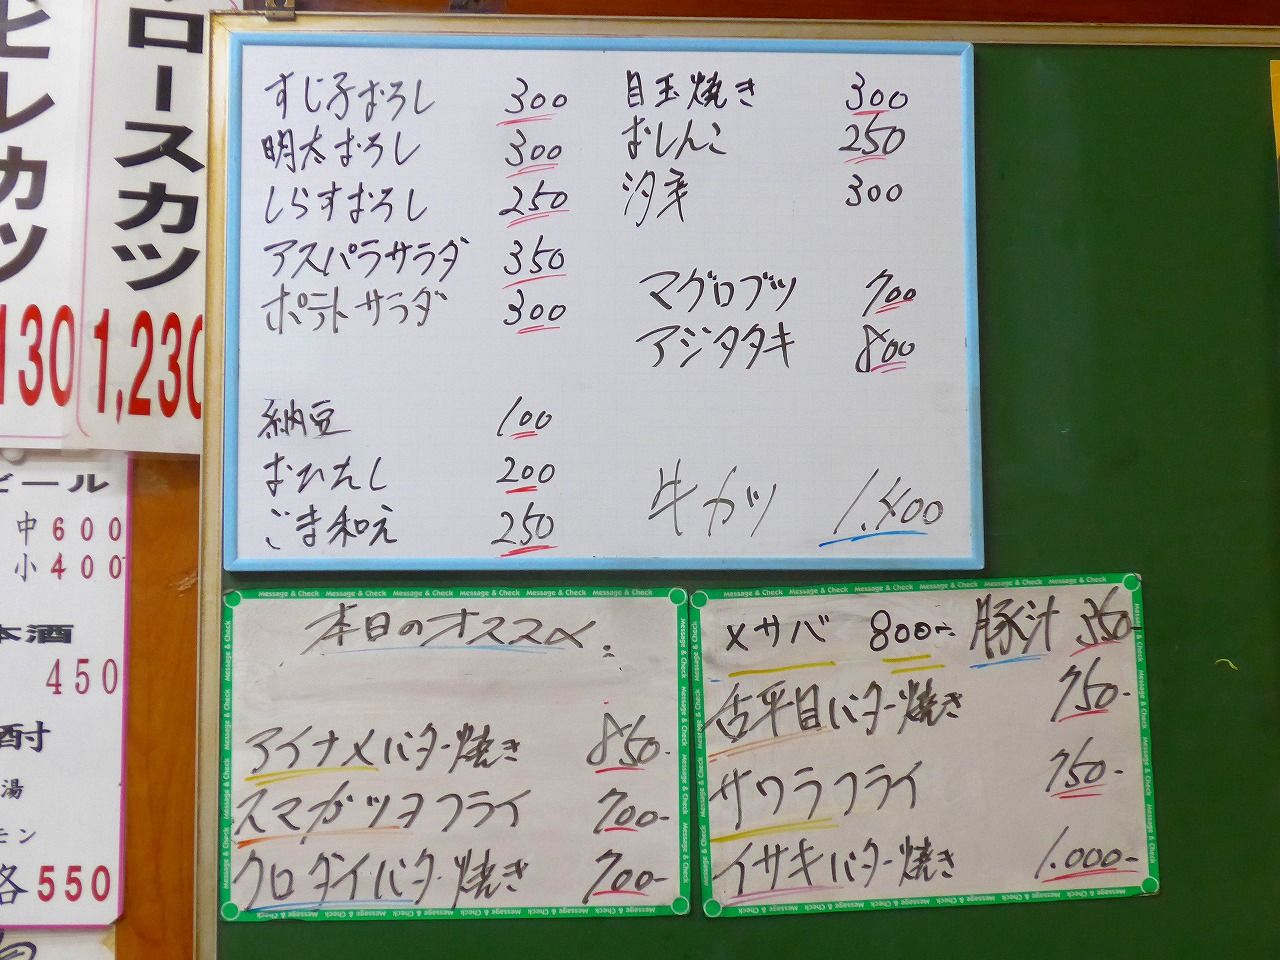 ヒレカツ
130
ロースカツ
1,230
ビール
中600
小400
本酒
450
酎
湯
モン
各550
すじ子おろし 300
明太おろし 300
しらすおろし 250
アスパラサラダ 350
ポテトサラダ 300
納豆 100
おひたし 200
ごま和え 250
目玉焼き 300
おしんこ 250
300
マグロブツ 700
アジタタキ 800
牛カツ 1.400
Message & Check Message & Check Message & Check Message & Check Message & Check
本日のオススメ
アイナメバター焼き 850-
スマガツヲフライ 700-
クロダイバター焼き 700-
Message & Check Message & Check Message & Check Message & Check Message & Check
メサバ 800- 豚汁 350-
舌平目バター焼き 750-
サワラフライ 750-
イサキバター焼き 1.000-